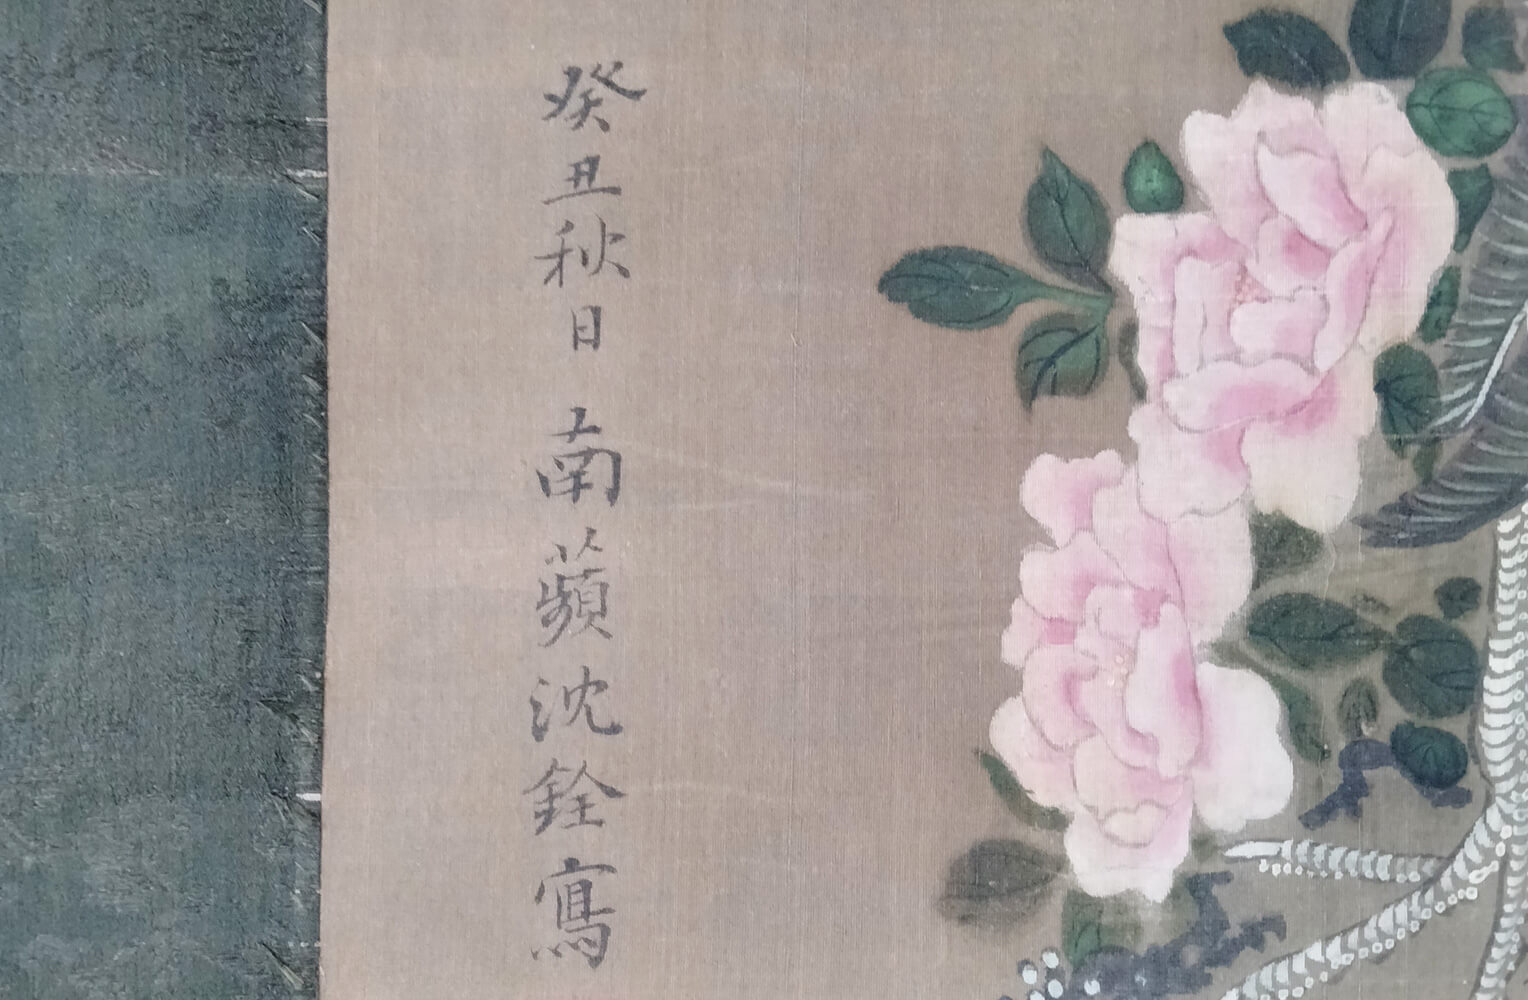 癸丑秋日南蘋沈銓寫